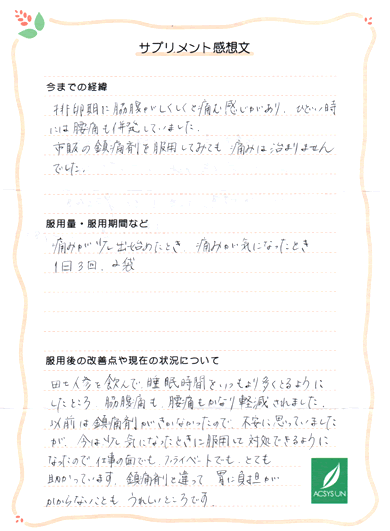 サプリメント感想文
今までの経緯
排卵期に脇腹がしくしくと痛む感じがあり、ひどい時
には腰痛も併発していました。
市販の鎮痛剤を服用してみても痛みは治まりません
でした。
服用量・服用期間など
痛みが少し出始めたとき、痛みが気になったとき
1日3回、2袋
服用後の改善点や現在の状況について
田七人参を飲んで、睡眠時間をいつもより多くとるように
したところ 脇腹痛も、腰痛もかなり軽減されました。
以前は鎮痛剤がきかなかったので、不安に思っていました
が、今は少し気になったときに服用して対処できるように
なったので 仕事の面でも、プライベントでも、とても
助かっています。鎮痛剤と違って 胃に負担が
かからないことも うれしいところです。
ACSYSUN